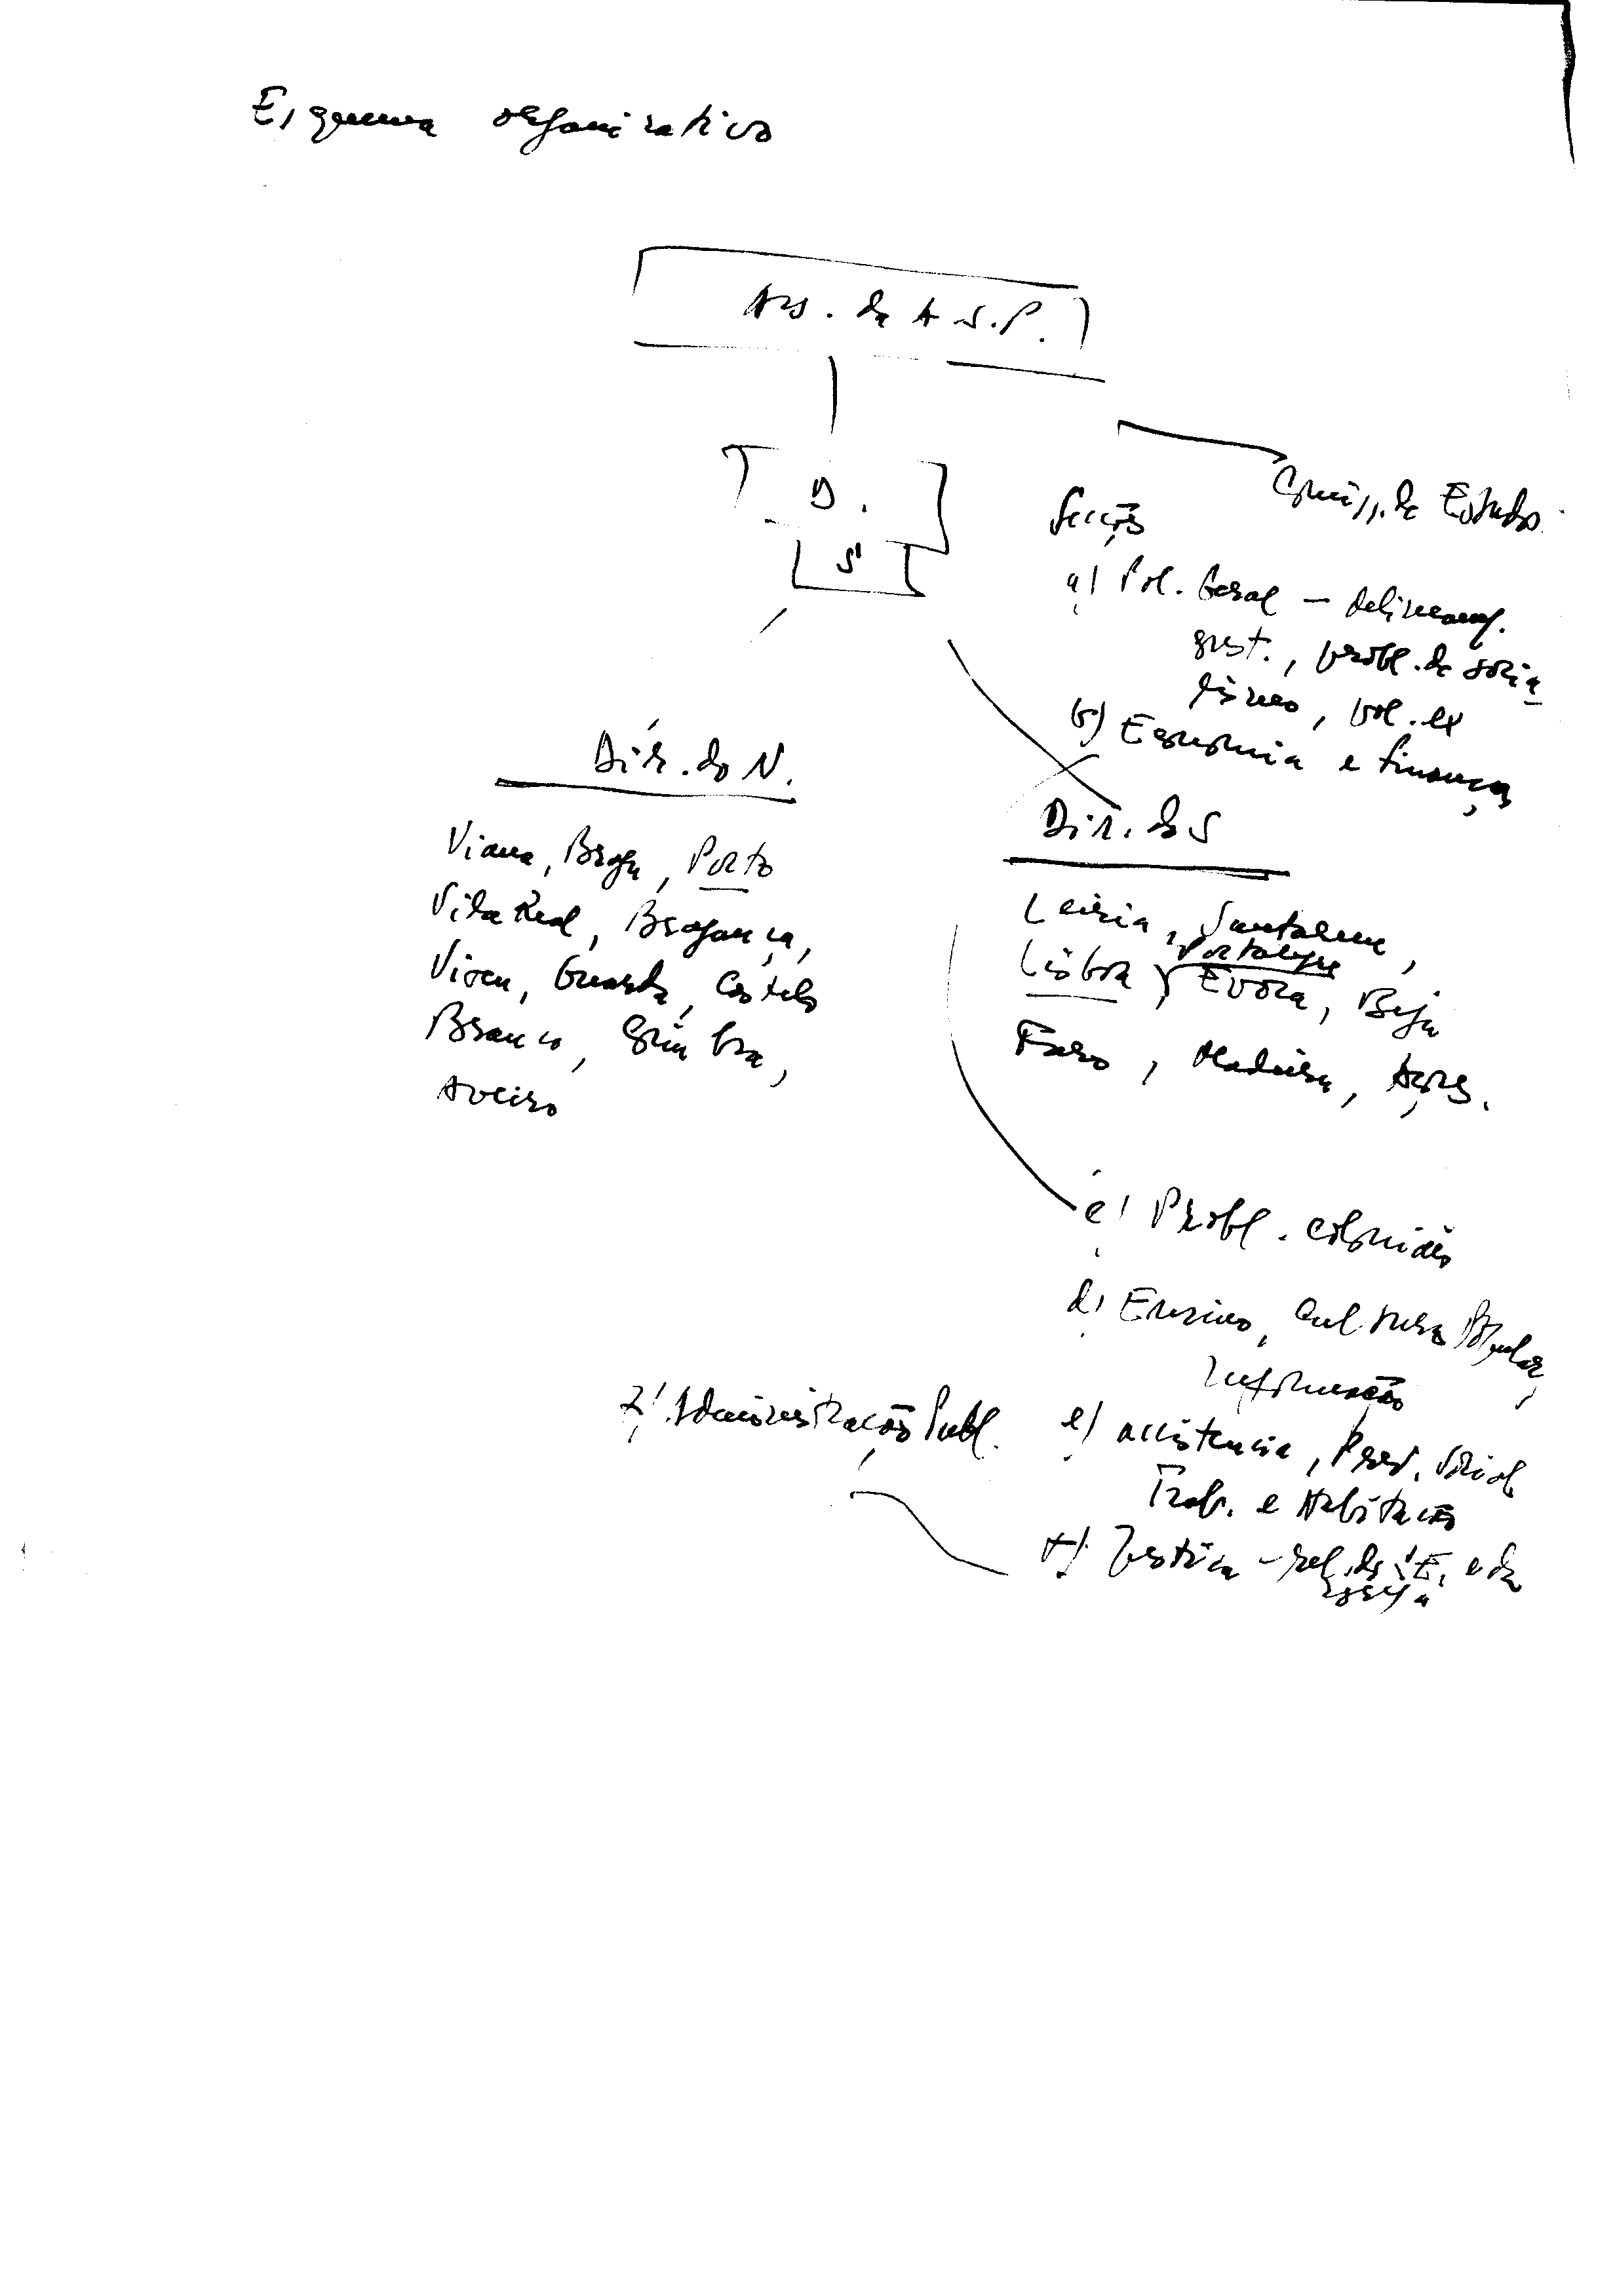 Esquema organizativo
Ass. da A S.P.
D.
S
Comiss. de Estudo
Secções
a) Pol. Geral — delineam.
gust., probl. de socia-
lismo, pol. ex
b) Economia e finanças
Dir. do N.
Viana, Braga, Porto
Vila Real, Bragança,
Viseu, Guarda, Castelo
Branco, Coimbra,
Aveiro
Dir. do S
Leiria, Santarem,
Portalegre
Lisboa, Evora, Beja
Faro, Madeira, Açores.
c) Probl. coloniais
d) Ensino, cultura Popular,
Informação
e) assistencia, Prev. Social
Trab. e Habitação
f) Justiça — rel. da E. e da
Igreja
g) Administração Publ.